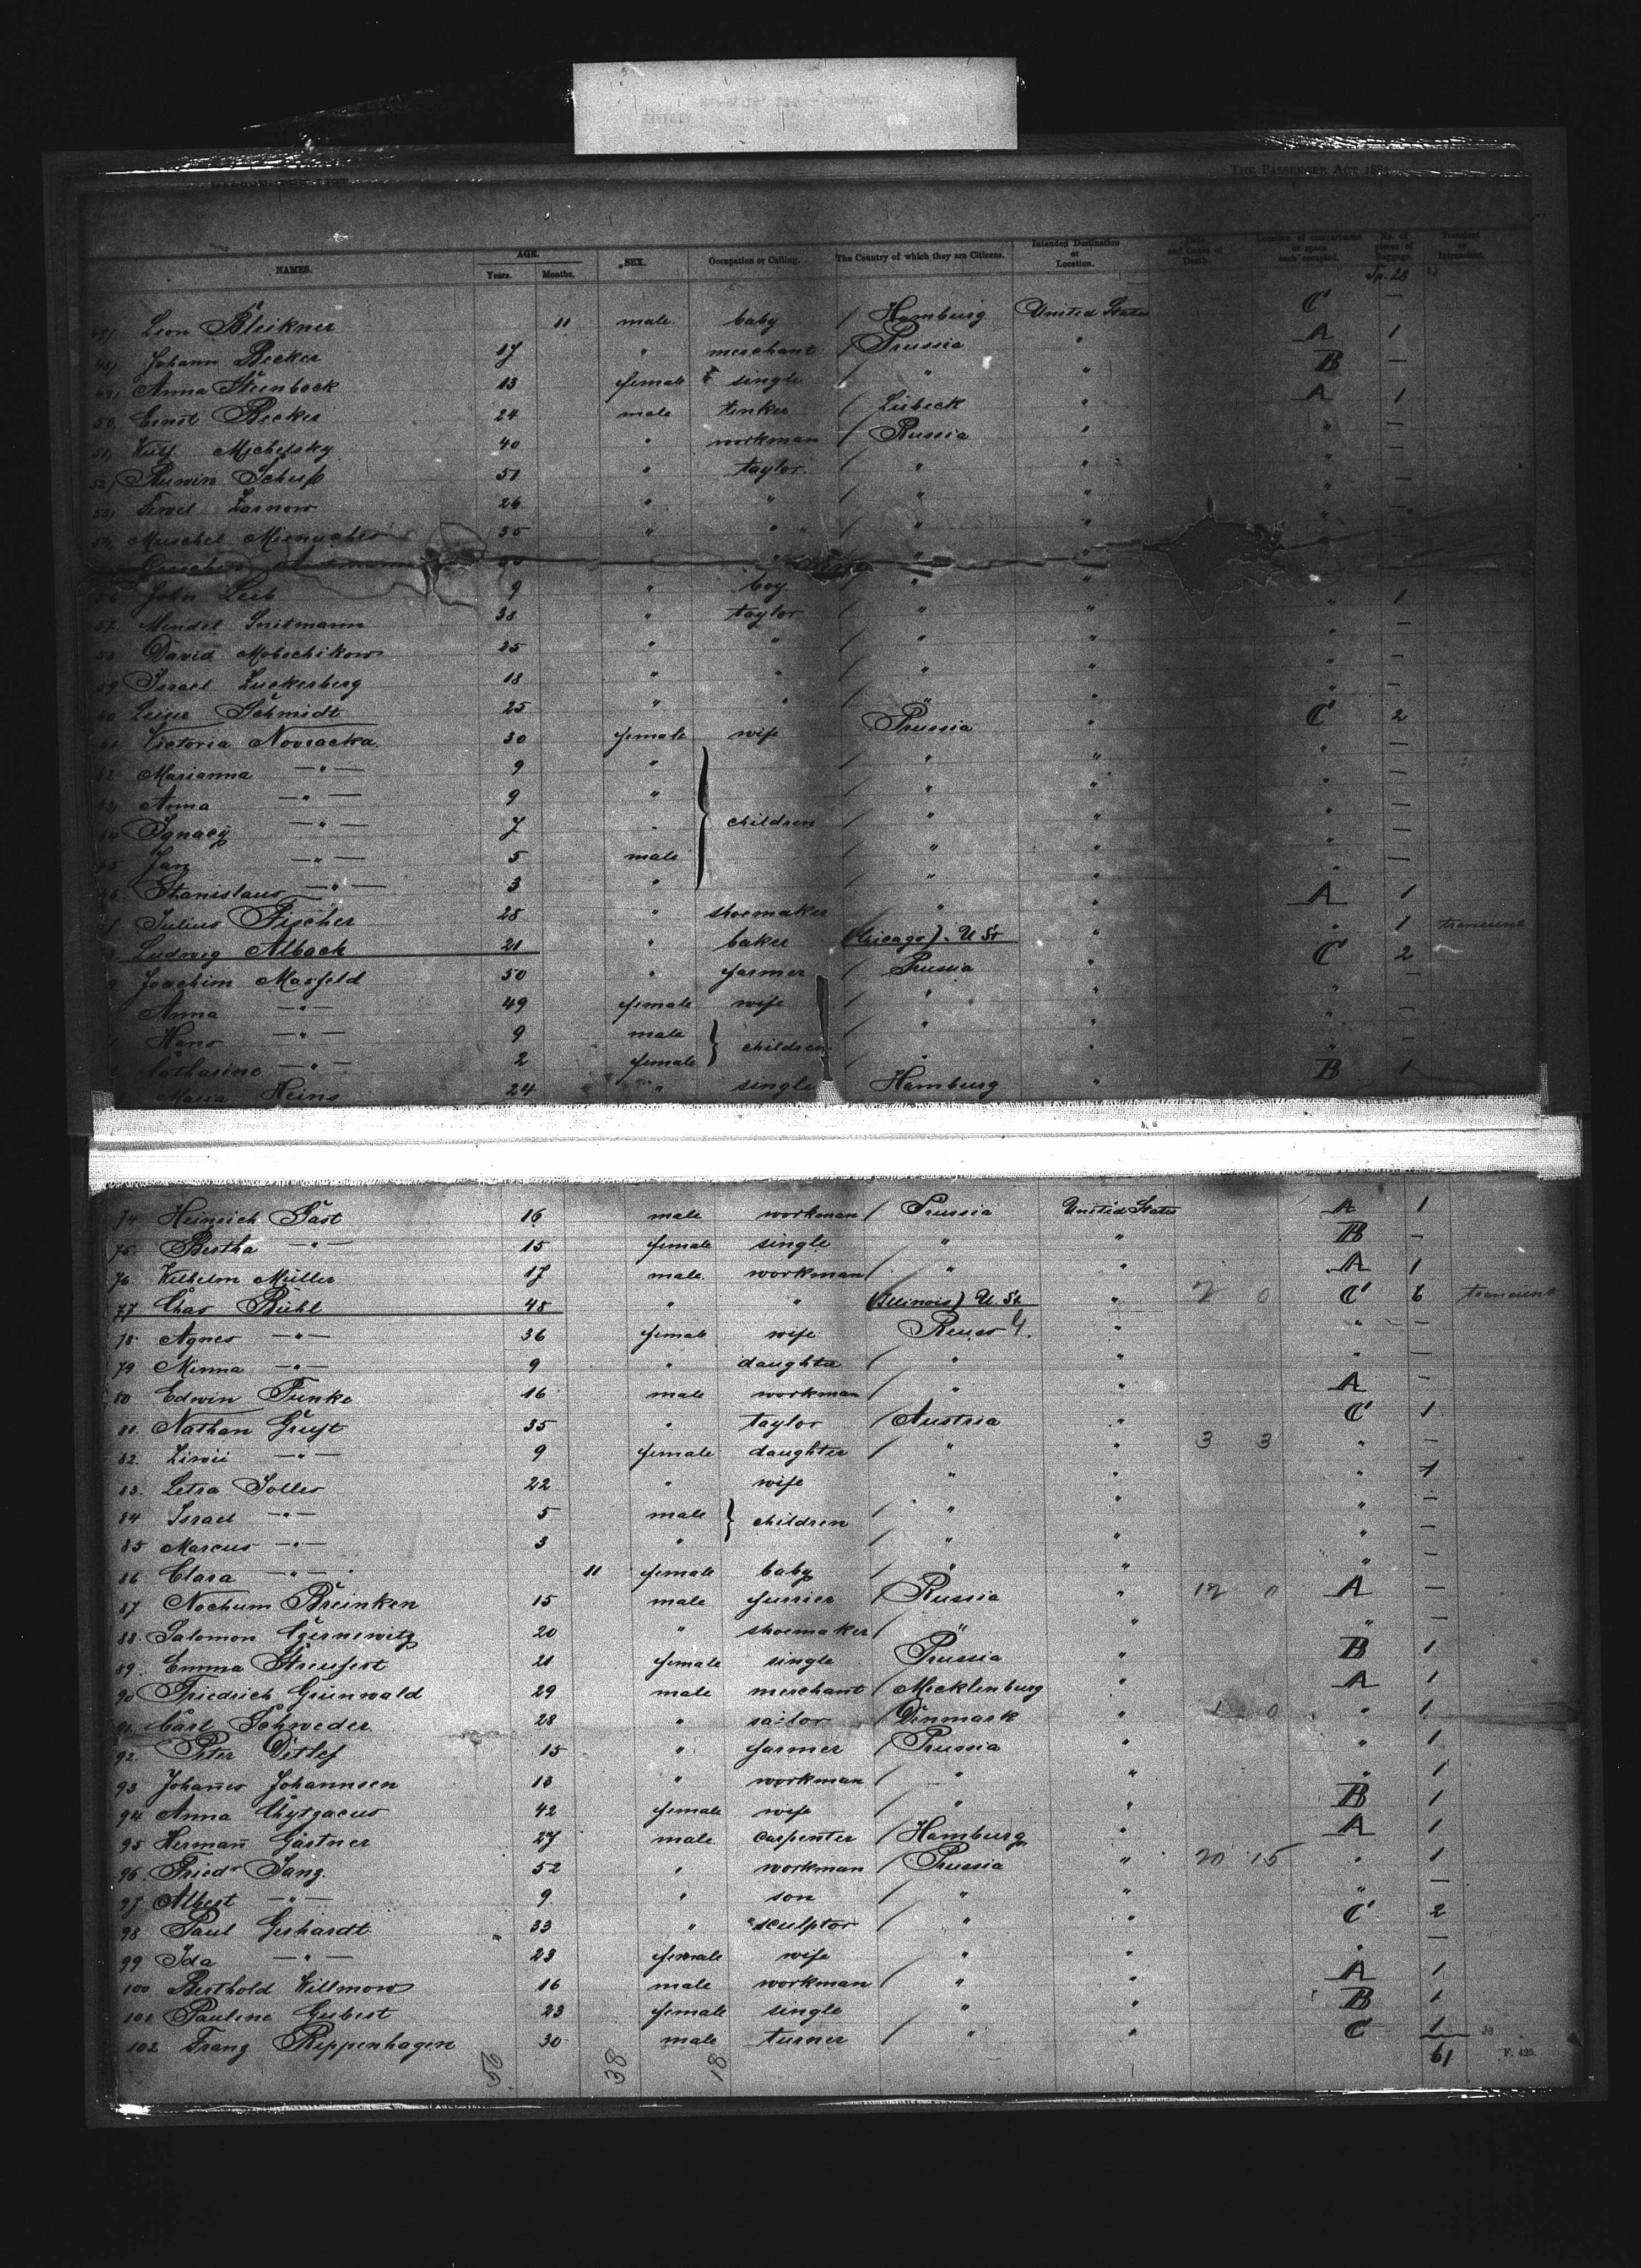 THE PASSENGER ACT 188
NAMES. AGE. Years. Months. SEX. Occupation or Calling. The Country of which they are Citizens. Intended Destination or Location. Date and Cause of Death. Location of compartment or space each occupied. No. of pieces of Baggage. Transient or Intransient.
Leon Bleikner 11 male baby / Hamburg United States C —
48, Johann Becker 17 " merchant / Prussia " A 1
49, Anna Steenbock 13 female single / " " B —
50, Ernst Becker 24 male tinker / Lübeck " A 1
51, Michelsky 40 " workman / Russia " " —
52, Ruwin 51 " taylor / " " " —
53, Zarnow 26 " " / " " " —
54, Muschel 35 " " / " " " —
56 John Leib 9 " boy / " " " 1
57. Mendel Snitmann 38 " taylor / " " " —
58 David Mobschikow 25 " " / " " " —
59 Israel Luckerberg 18 " " / " " " —
60 Leiser Schmidt 25 " " / " " " —
61 Victoria Novracka 30 female wife Prussia " C 2
62 Marianna —"— 9 " / " " " —
63, Anna —"— 9 " / " " " —
64 Ignacy —"— 7 " children / " " " —
65 Jan —"— 5 male / " " " —
66 Stanislaus —"— 3 " / " " " —
67 Julius Fischer 28 " shoemaker / " " A 1
Ludwig Albach 21 " baker (Chicago). U St " " 1 transient
Joachim Masfeld 50 " farmer / Prussia " C 2
Anna —"— 49 female wife / " " " —
Hans —"— 9 male children / " " " —
Catharine —"— 2 female / " " " —
Maria Heins 24 " single Hamburg " B 1
74 Heinrich Past 16 male workman / Prussia United States A 1
75. Bertha —"— 15 female single " " B —
76. Wilhelm Müller 17 male workman / " " A 1
77 Chas Bühl 48 " " (Illinois) U. St. " 2 0 C 6 transient
78. Agnes —"— 36 female wife Reuss " " —
79 Minna —"— 9 " daughter / " " " —
80 Edwin Funke 16 male workman / " " A —
81. Nathan 35 " taylor / Austria " C 1
82. —"— 9 female daughter / " " 3 3 " —
83. Letra Solles 22 " wife " " " 1
84 Israel —"— 5 male children / " " " —
85 Marcus —"— 3 " / " " " —
86. Clara —"— 11 female baby / " " " —
87 Nochum Breinken 15 male furrier / Russia " 12 0 A —
88. Salomon Czernewitz 20 " shoemaker / " " " —
89. Emma Streufert 21 female single Prussia " B 1
90 Friedrich Grünwald 29 male merchant / Mecklenburg " A 1
91. Carl Schweder 28 " sailor / Dänmark " 1 0 " 1
92. Peter Detlef 15 " farmer / Prussia " " 1
93 Johanes Johannsen 13 " workman / " " " 1
94 Anna Chytgacus 42 female wife / " " B 1
95 Hermann Gärtner 27 male carpenter / Hamburg " A 1
96. Friedr Jang. 52 " workman / Prussia " 20 15 " 1
97 Albert —"— 9 " son / " " " —
98 Paul Gerhardt 33 " sculptor / " " C 2
99 Ida —"— 23 female wife " " " —
100 Berthold Willmow 16 male workman / " " A 1
101 Pauline Geibert 23 female single " " B 1
102 Franz Rippenhagen 30 male turner / " " C 1
38 18 61
F. 425.